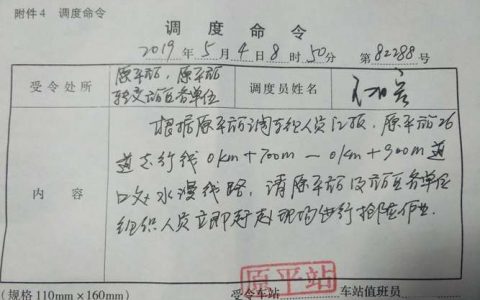 附件4 调度命令
调度命令
2019年5月4日8时50分 第82288号
受令处所 原平站,原平站
转交站区各单位 调度员姓名
根据原平站调车组人员汇报,原平站26
道走行线0km+700m—0km+900m道
口处水漫线路,请原平站及站区各单位
内容
组织人员立即赶赴现场进行抢险作业.
原平站
(规格110mm×160mm) 受令车站 车站值班员